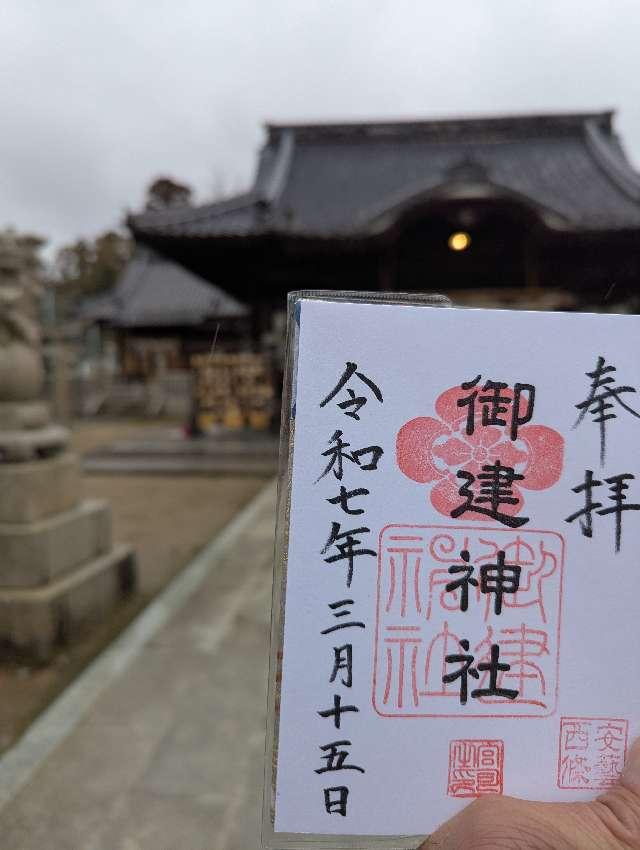 奉拝
御建神社
令和七年三月十五日
安藝
西條